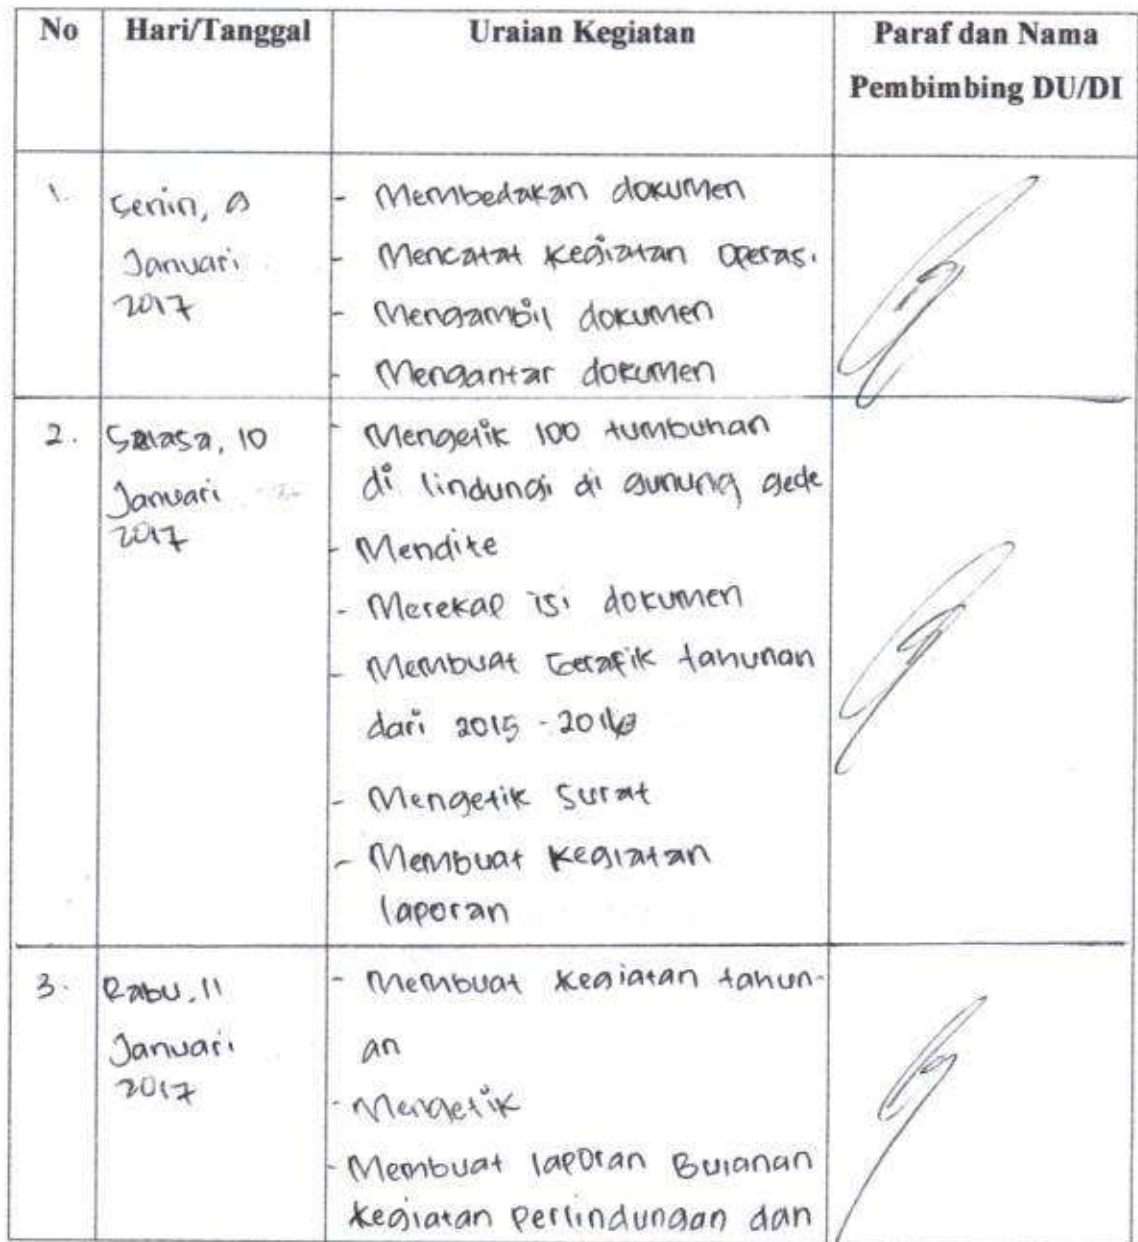 No Hari/Tanggal Uraian Kegiatan Paraf dan Nama
Pembimbing DU/DI
1. Senin, 9 - Membedakan dokumen
Januari - Mencatat kegiatan operasi
2017 - Mengambil dokumen
- Mengantar dokumen
2. Selasa, 10 - Mengetik 100 tumbuhan
Januari di lindungi di gunung gede
2017 - Mendite
- Merekap isi dokumen
- Membuat Gerafik tahunan
dari 2015 - 2016
- Mengetik surat
- Membuat kegiatan
laporan
3. Rabu, 11 - Membuat kegiatan tahun-
Januari an
2017 - Mengetik
- Membuat laporan Bulanan
kegiatan perlindungan dan